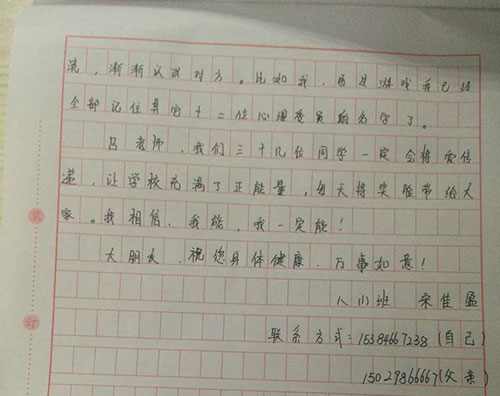 流，渐渐认识对方。比如我，通过游戏我已经
全部记住其它十二位心理委员的名字了。
吕老师，我们三十几位同学一定会将爱传
递，让学校充满了正能量，每天将笑脸带给大
家。我相信，我能，我一定能！
大朋友，祝您身体健康，万事如意！
八(1)班 宋佳盈
联系方式：15384667238(自己)
15029866667(父亲)
装
订